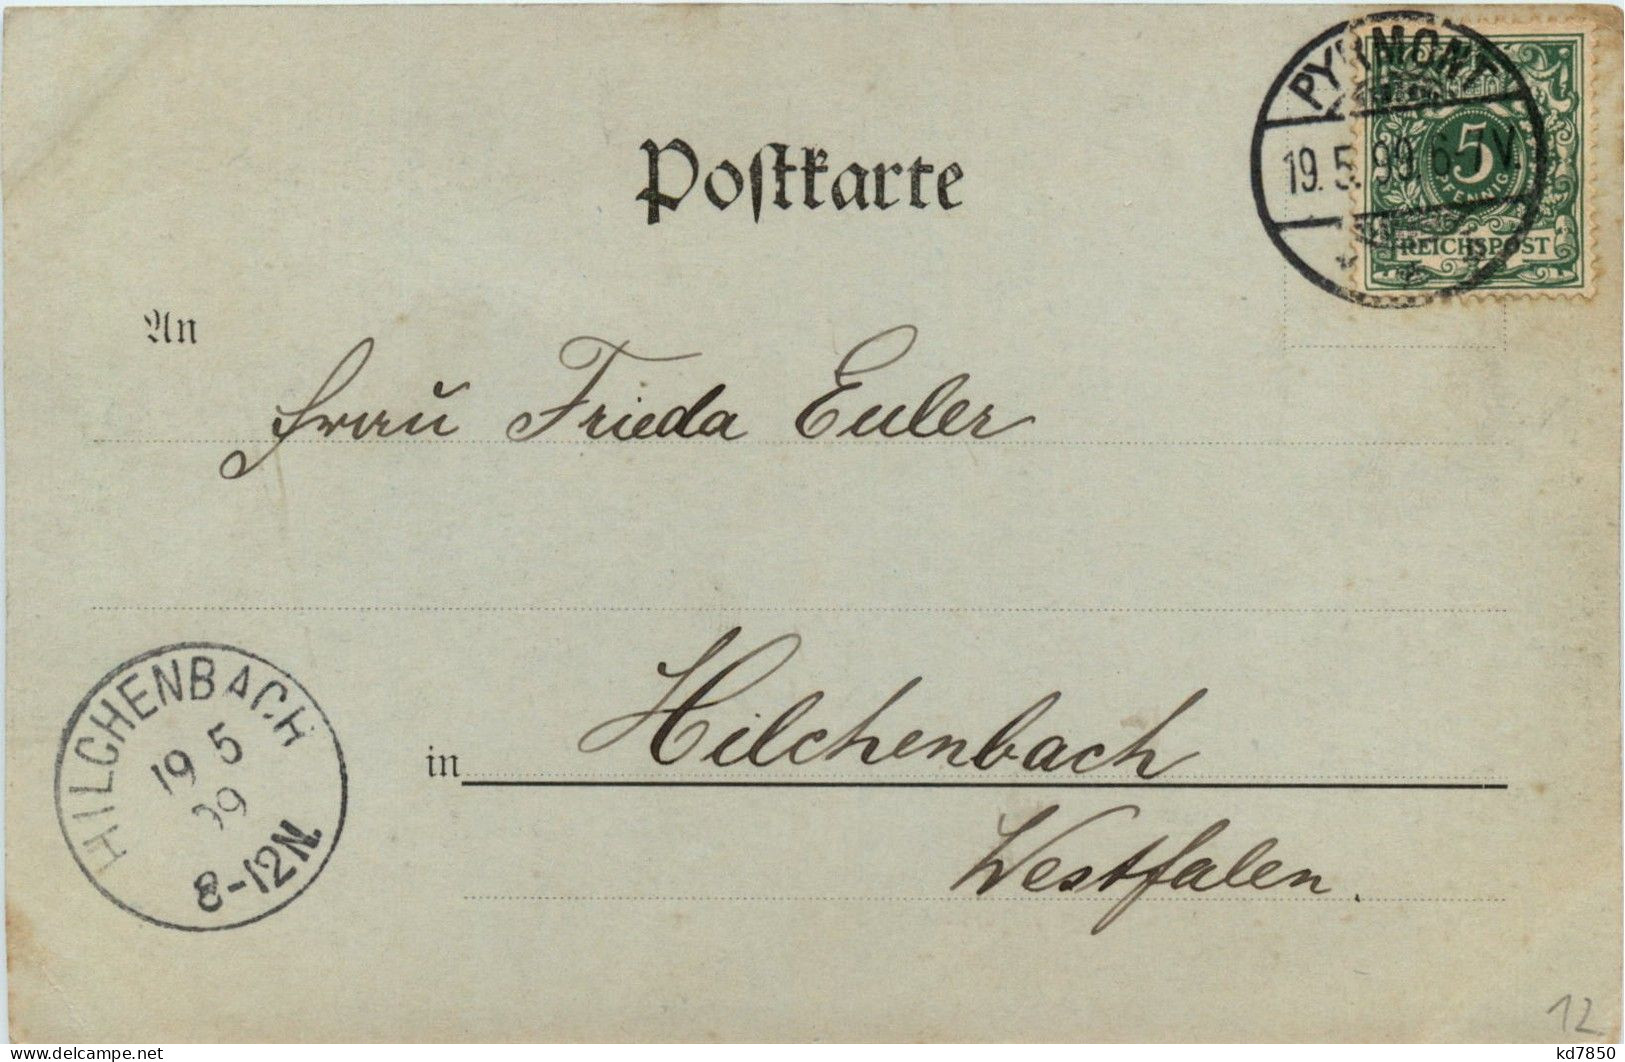 PYRMONT
19. 5. 99. 6-7 V.
5
PFENNIG
REICHSPOST
Postkarte
An
Frau Frieda Euler
HILCHENBACH
19 5
99
8-12N.
in Hilchenbach
Westfalen.
12
kd7850